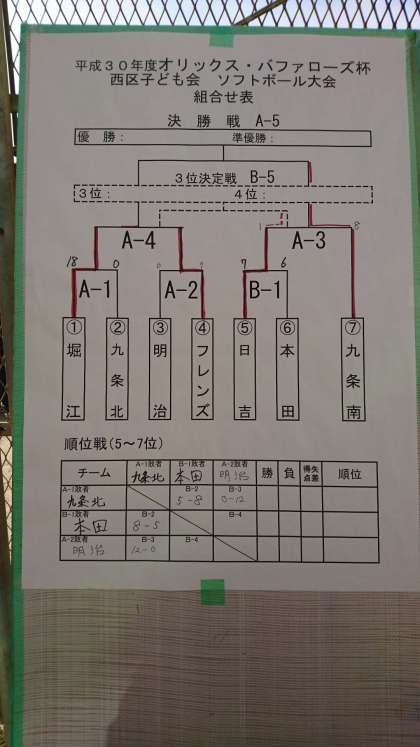 平成30年度オリックス・バファローズ杯
西区子ども会 ソフトボール大会
組合せ表
決勝戦 A-5
優勝: 準優勝:
3位決定戦 B-5
3位: 4位:
1 8
A-4 A-3
18 0 7 6
A-1 A-2 B-1
① ② ③ ④ ⑤ ⑥ ⑦
堀江 九条北 明治 フレンズ 日吉 本田 九条南
順位戦(5~7位)
チーム A-1敗者 九条北 B-1敗者 本田 A-2敗者 明治 勝 負 得失点差 順位
A-1敗者 九条北 B-2 5-8 B-3 0-12
B-1敗者 本田 B-2 8-5 B-4
A-2敗者 明治 B-3 12-0 B-4